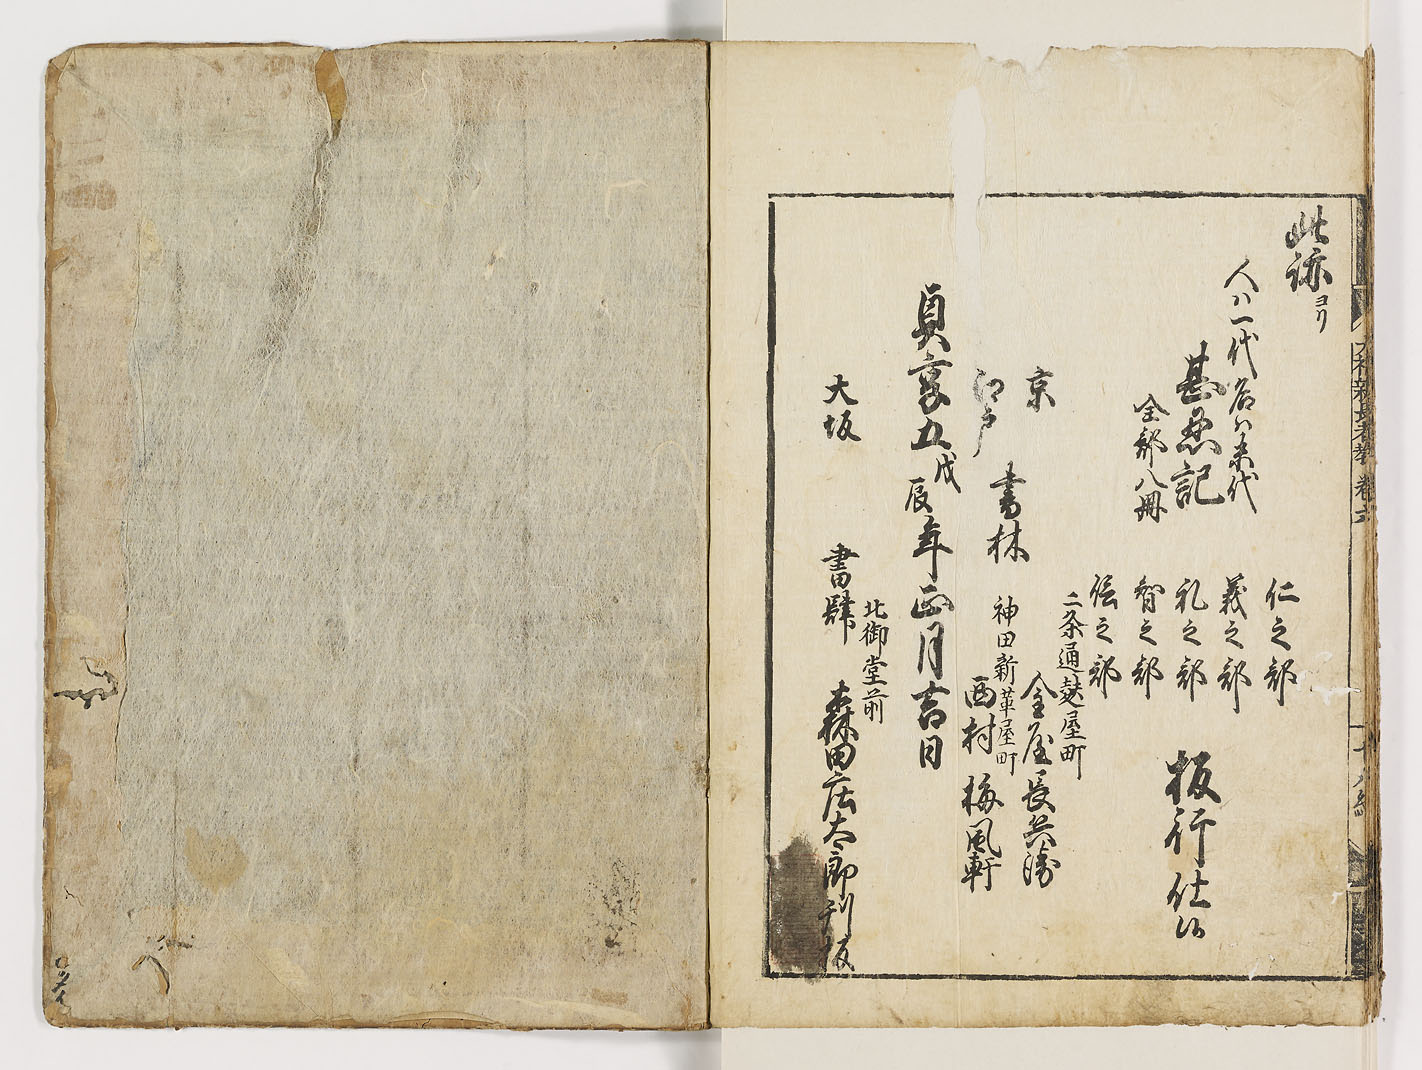 此跡ヨリ
人ハ一代名ハ末代
甚忍記
全部八冊
仁之部
義之部
礼之部
智之部
信之部
板行仕候
京
二条通麸屋町
金屋長兵衛
江戸
書林
神田新革屋町
西村梅風軒
貞享五戊辰年正月吉日
大坂
書肆
北御堂前
森田庄太郎刊板
大福新長者教
巻六